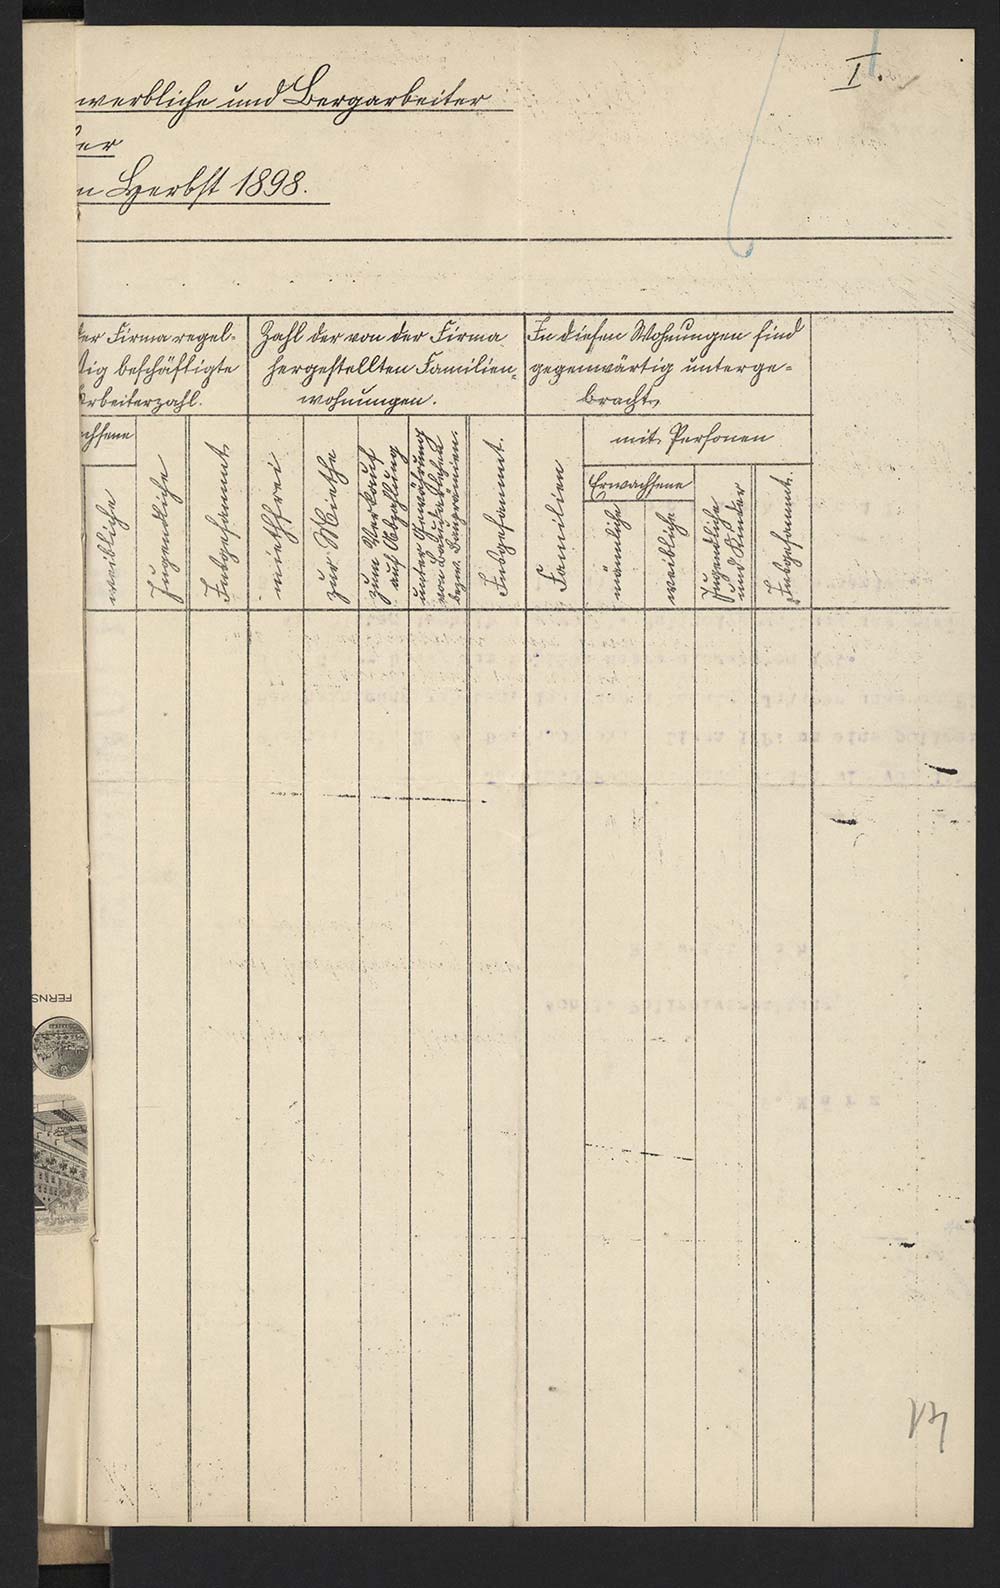 I.
werbliche und Bergarbeiter
er
n Herbst 1898.
der Firma regel-
ßig beschäftigte
Arbeiterzahl.
chsene
weibliche
Jugendliche
Insgesammt
Zahl der von der Firma
hergestellten Familien-
wohnungen.
miethfrei
zur Miethe
zum Verkauf
auf Abzahlung
unter Gewährung
von Baudarlehen
bezw. Bauprämien.
Insgesammt.
In diesen Wohnungen sind
gegenwärtig unterge-
bracht
Familien
mit Personen
Erwachsene
männliche
weibliche
Jugendliche
und Kinder
Insgesammt.
FERNS